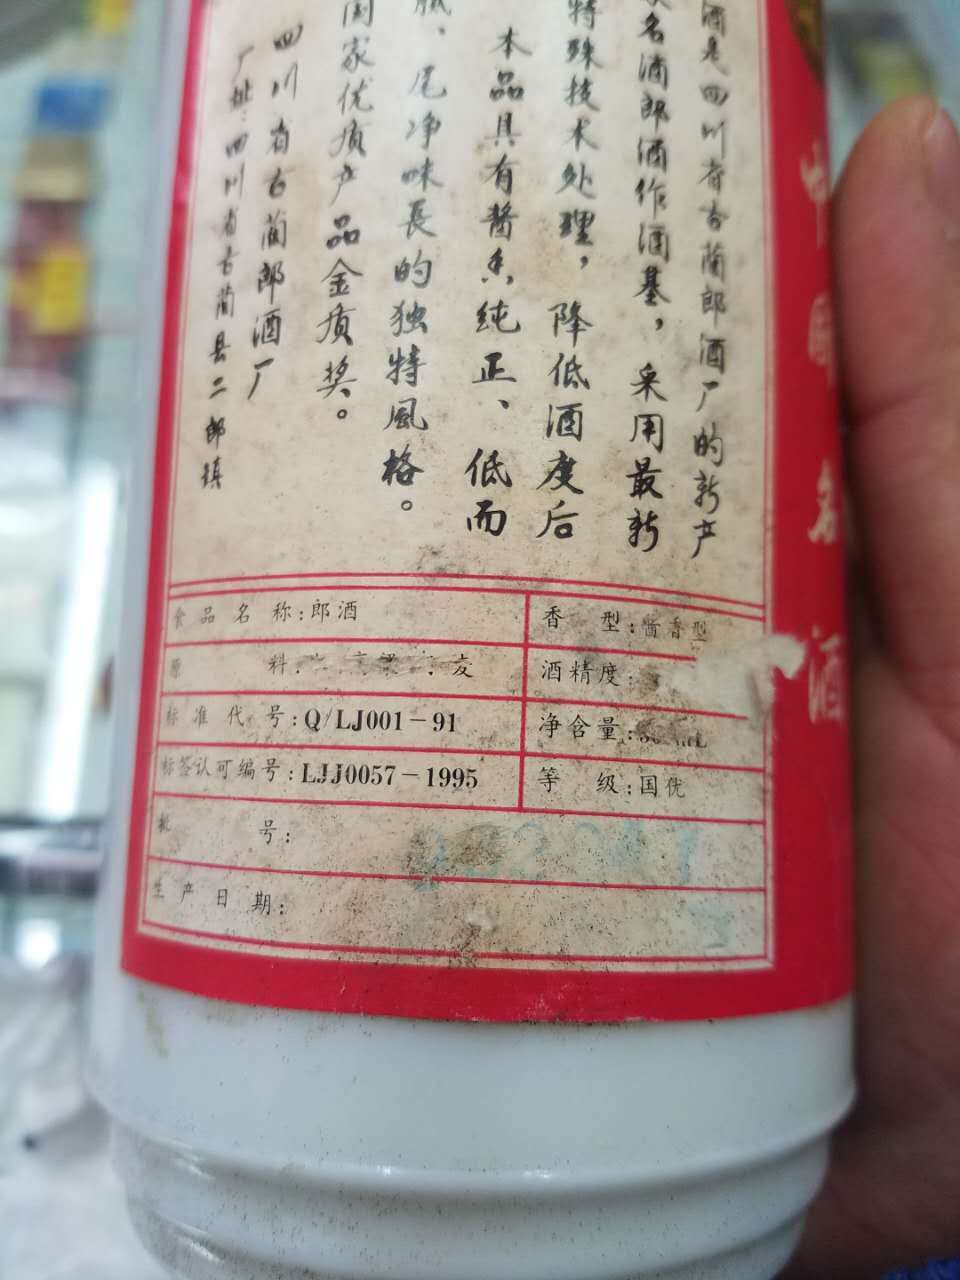 酒是四川省古藺郎酒厂的新产
家名酒郎酒作酒基，采用最新
特殊技术处理，降低酒度后
本品具有醬香纯正、低而
腻、尾净味長的独特風格。
国家优质产品金质奖。
四川省古藺郎酒厂
厂址：四川省古藺县二郎镇
中国名酒
食品名称：郎酒
香型：酱香型
原料：
酒精度：
标准代号：Q/LJ001-91
净含量：
标签认可编号：LJJ0057-1995
等级：国优
批号：
生产日期：